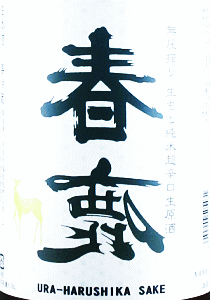 無圧搾り 生もと純米超辛口生原酒
春鹿
URA-HARUSHIKA SAKE